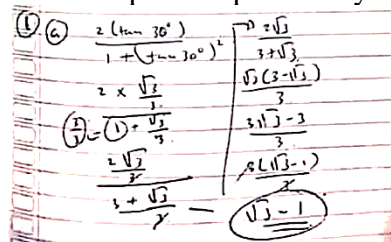 ① ⓐ
2 (tan 30°)
1 + (tan 30°)²
2 × √3/3
(3/3) = ① + √3/3
2√3/3
3 + √3/3
→ 2√3
3 + √3
√3 (3 - √3)
3
3√3 - 3
3
3(√3 - 1)
3
√3 - 1